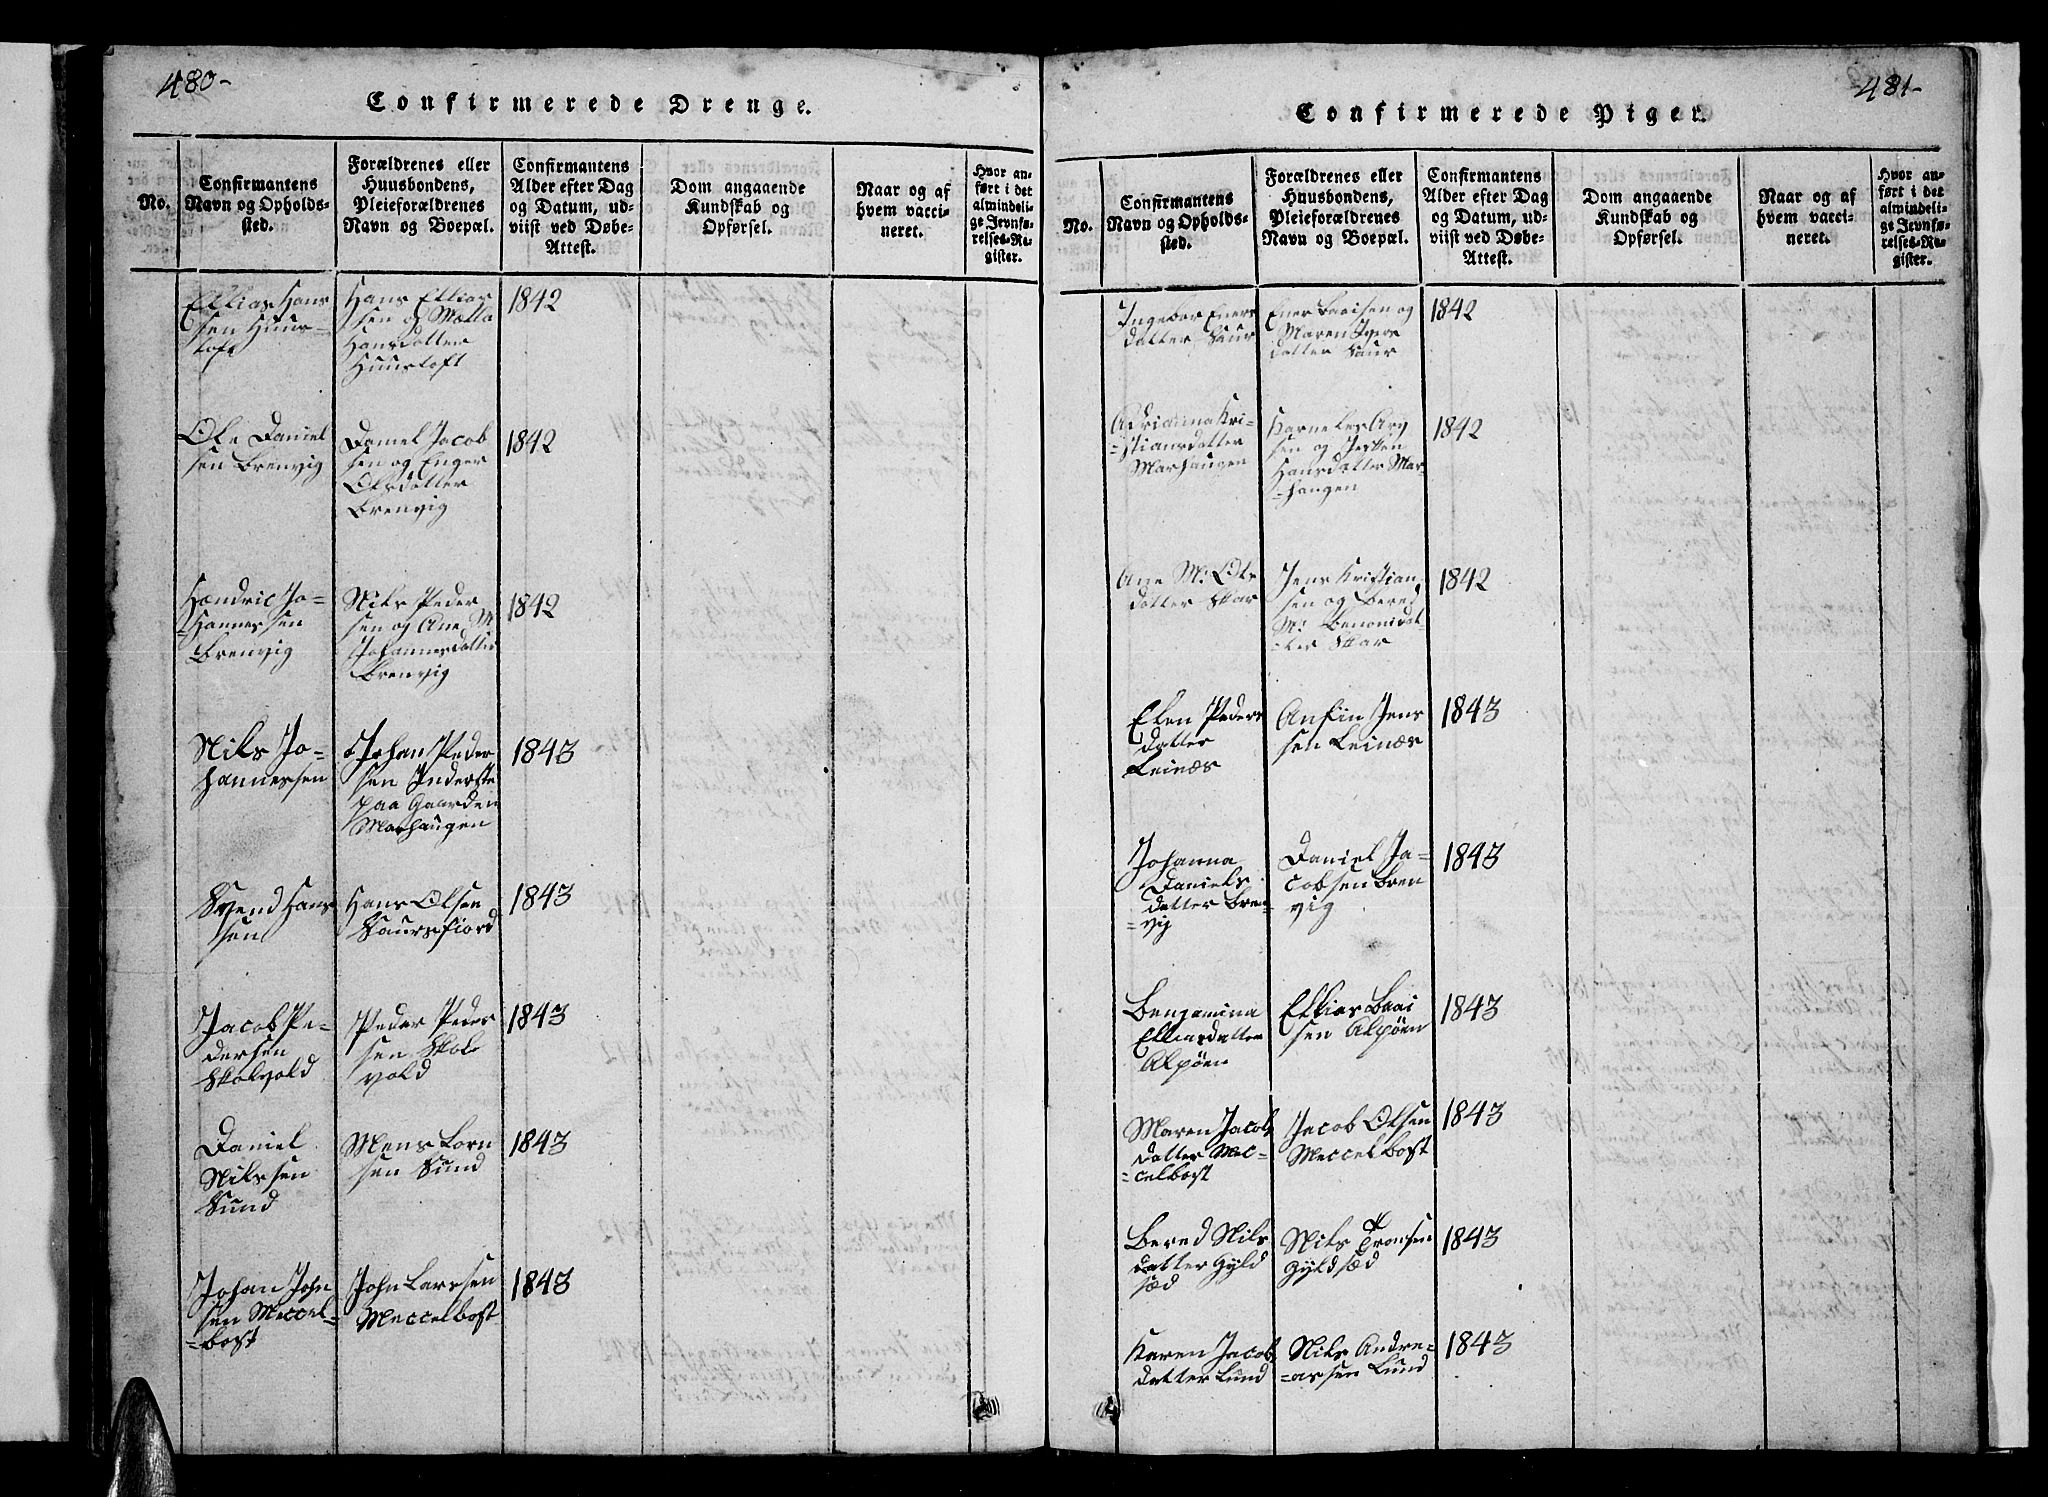 480-
Confirmerede Drenge.
No.
Confirmantens
Navn og Opholds-
sted.
Forældrenes eller
Huusbondens,
Pleieforældrenes
Navn og Boepæl.
Confirmantens
Alder efter Dag
og Datum, ud-
viist ved Døbe-
Attest.
Dom angaaende
Kundskab og
Opførsel.
Naar og af
hvem vacci-
neret.
Hvor an-
ført i det
almindeli-
ge Jevnfø-
relses-Re-
gister.
Ellias Hans
sen Huus-
toft
Hans Ellias
sen og Malla
Hansdatter
Huustoft
1842
Ole Daniel
sen Brenvig
Daniel Jacob
sen og Enger
Olsdatter
Brenvig
1842
Hendric Jo-
hannessen
Brenvig
Nils Peder
sen og Ane M
Johannesdatter
Brenvig
1842
Nils Jo-
hannessen
Johan Peder
sen Inderste
paa Gaarden
Marhaugen
1843
Svend Hans
sen
Hans Olsen
Saursfiord
1843
Jacob Pe-
dersen
Skolvold
Peder Peder
sen Skol
vold
1843
Daniel
Nilssen
Sund
Mens Lorn
sen Sund
1843
Johan John
sen Meccel-
=bost
John Larssen
Meccelbost
1843
481-
Confirmerede Piger.
No.
Confirmantens
Navn og Opholds-
sted.
Forældrenes eller
Huusbondens,
Pleieforældrenes
Navn og Boepæl.
Confirmantens
Alder efter Dag
og Datum, ud-
viist ved Døbe-
Attest.
Dom angaaende
Kundskab og
Opførsel.
Naar og af
hvem vacci-
neret.
Hvor an-
ført i det
almindeli-
ge Jevnfø-
relses-Re-
gister.
Ingebor Eners
datter Saur
Ener Baaisen og
Maren Ivers
datter Saur
1842
Adriana Kri-
=stiansdatter
Marhaugen
Karneles Arn
sen og Jesken
Hansdatter Mar
=haugen
1842
Ane M: Ols
datter Skar
Jens Kristian
sen og Bered
M: Benonidat-
=ter Skar
1842
Elen Peders
datter
Leinæs
Anfin Jens
sen Leinæs
1843
Johanna
Daniels
datter Bren-
=vig
Daniel Ja-
cobsen Bren
vig
1843
Benjamina
Elliasdatter
Alpøen
Ellias Baai
sen Alpøen
1843
Maren Jacobs
datter Mec-
=celbost
Jacob Olsen
Meccelbost
1843
Bered Nils
datter Gyld
sæd
Nils Tronsen
Gyldsæd
1843
Karen Jacobs
datter Lund
Nils Andre-
=assen Lund
1843